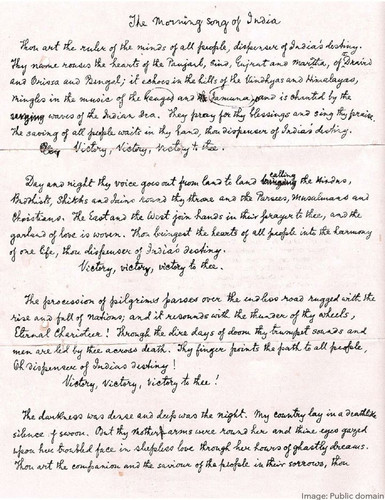 The Morning Song of India
Thou art the ruler of the minds of all people, dispenser of India's destiny.
Thy name rouses the hearts of the Panjab, Sind, Gujrat and Maratha, of Dravid
and Orissa and Bengal; it echoes in the hills of the Vindhyas and Himalayas,
mingles in the music of the Ganges and Jamuna, and is chanted by the
waves of the Indian Sea. They pray for thy blessings and sing thy praise.
The saving of all people waits in thy hand, thou dispenser of India's destiny.
Victory, Victory, Victory to thee.
Day and night thy voice goes out from land to land calling the Hindus,
Buddhists, Sikhs and Jains round thy throne and the Parsees, Musulmans and
Christians. The East and the West join hands in their prayer to thee, and the
garland of love is woven. Thou bringest the hearts of all people into the harmony
of one life, thou dispenser of India's destiny.
Victory, victory, victory to thee.
The procession of pilgrims passes over the endless road rugged with the
rise and fall of nations; and it resounds with the thunder of thy wheels,
Eternal Charioteer! Through the dire days of doom thy trumpet sounds and
men are led by thee across death. Thy finger points the path to all people,
Oh dispenser of India's destiny!
Victory, Victory, victory to thee!
The darkness was dense and deep was the night. My country lay in a deathlike
silence of swoon. But thy mother arms were round her and thine eyes gazed
upon her troubled face in sleepless love through her hours of ghastly dreams.
Thou art the companion and the saviour of the people in their sorrows, thou
Image: Public domain